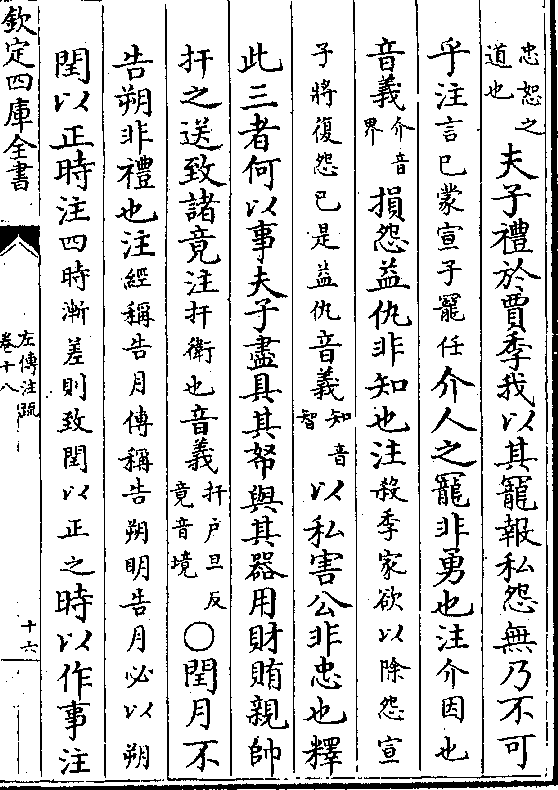 忠恕之
道也
夫子禮於賈季我以其寵報私怨無乃不可
乎注言己蒙宣子寵任介人之寵非勇也注介因也
音義介音
界
損怨益仇非知也注殺季家欲以除怨宣
子將復怨己是益仇音義知音
智
以私害公非忠也釋
此三者何以事夫子盡具其帑與其器用財賄親帥
扞之送致諸竟注扞衛也音義扞戶旦反
竟音境
○閏月不
告朔非禮也注經稱告月傳稱告朔明告月必以朔
閏以正時注四時漸差則致閏以正之時以作事注
欽定四庫全書
左傳注疏
卷十八
十六